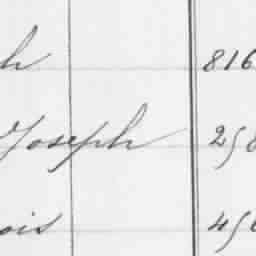 h 816
Joseph 258
ois 456